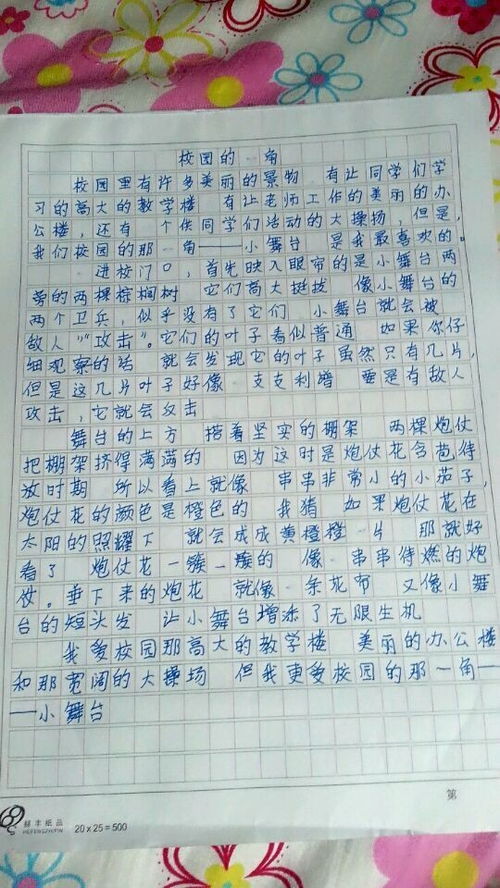 校园的一角
校园里有许多美丽的景物 有让同学们学
习的高大的教学楼 有让老师工作的美丽的办
公楼，还有 个供同学们活动的大操场，但是，
我们校园的那一角——小舞台 是我最喜欢的。
进校门口，首先映入眼帘的是小舞台两
旁的两棵棕榈树 它们高大挺拔 像小舞台的
两个卫兵，似乎没有了它们 小舞台就会被
敌人"攻击"。它们的叶子看似普通 如果你仔
细观察的话 就会发现它的叶子虽然只有几片，
但是这几片叶子好像 支支利 是有敌人
攻击，它就会反击
舞台的上方 搭着坚实的棚架 两棵炮仗
把棚架挤得满满的 因为这时是炮仗花含苞待
放时期 所以看上就像 串串非常小的小茄子，
炮仗花的颜色是橙色的 我猜 如果炮仗花在
太阳的照耀下 就会成成黄橙橙一片 那就好
看了 炮仗花一簇一簇的 像一串串待燃的炮
仗。垂下来的炮花 就像一条花布 又像小舞
台的短头发 让小舞台增添了无限生机
我爱校园那高大的教学楼 美丽的办公楼
和那宽阔的大操场 但我更爱校园的那一角—
—小舞台
第
纸品
20×25=500